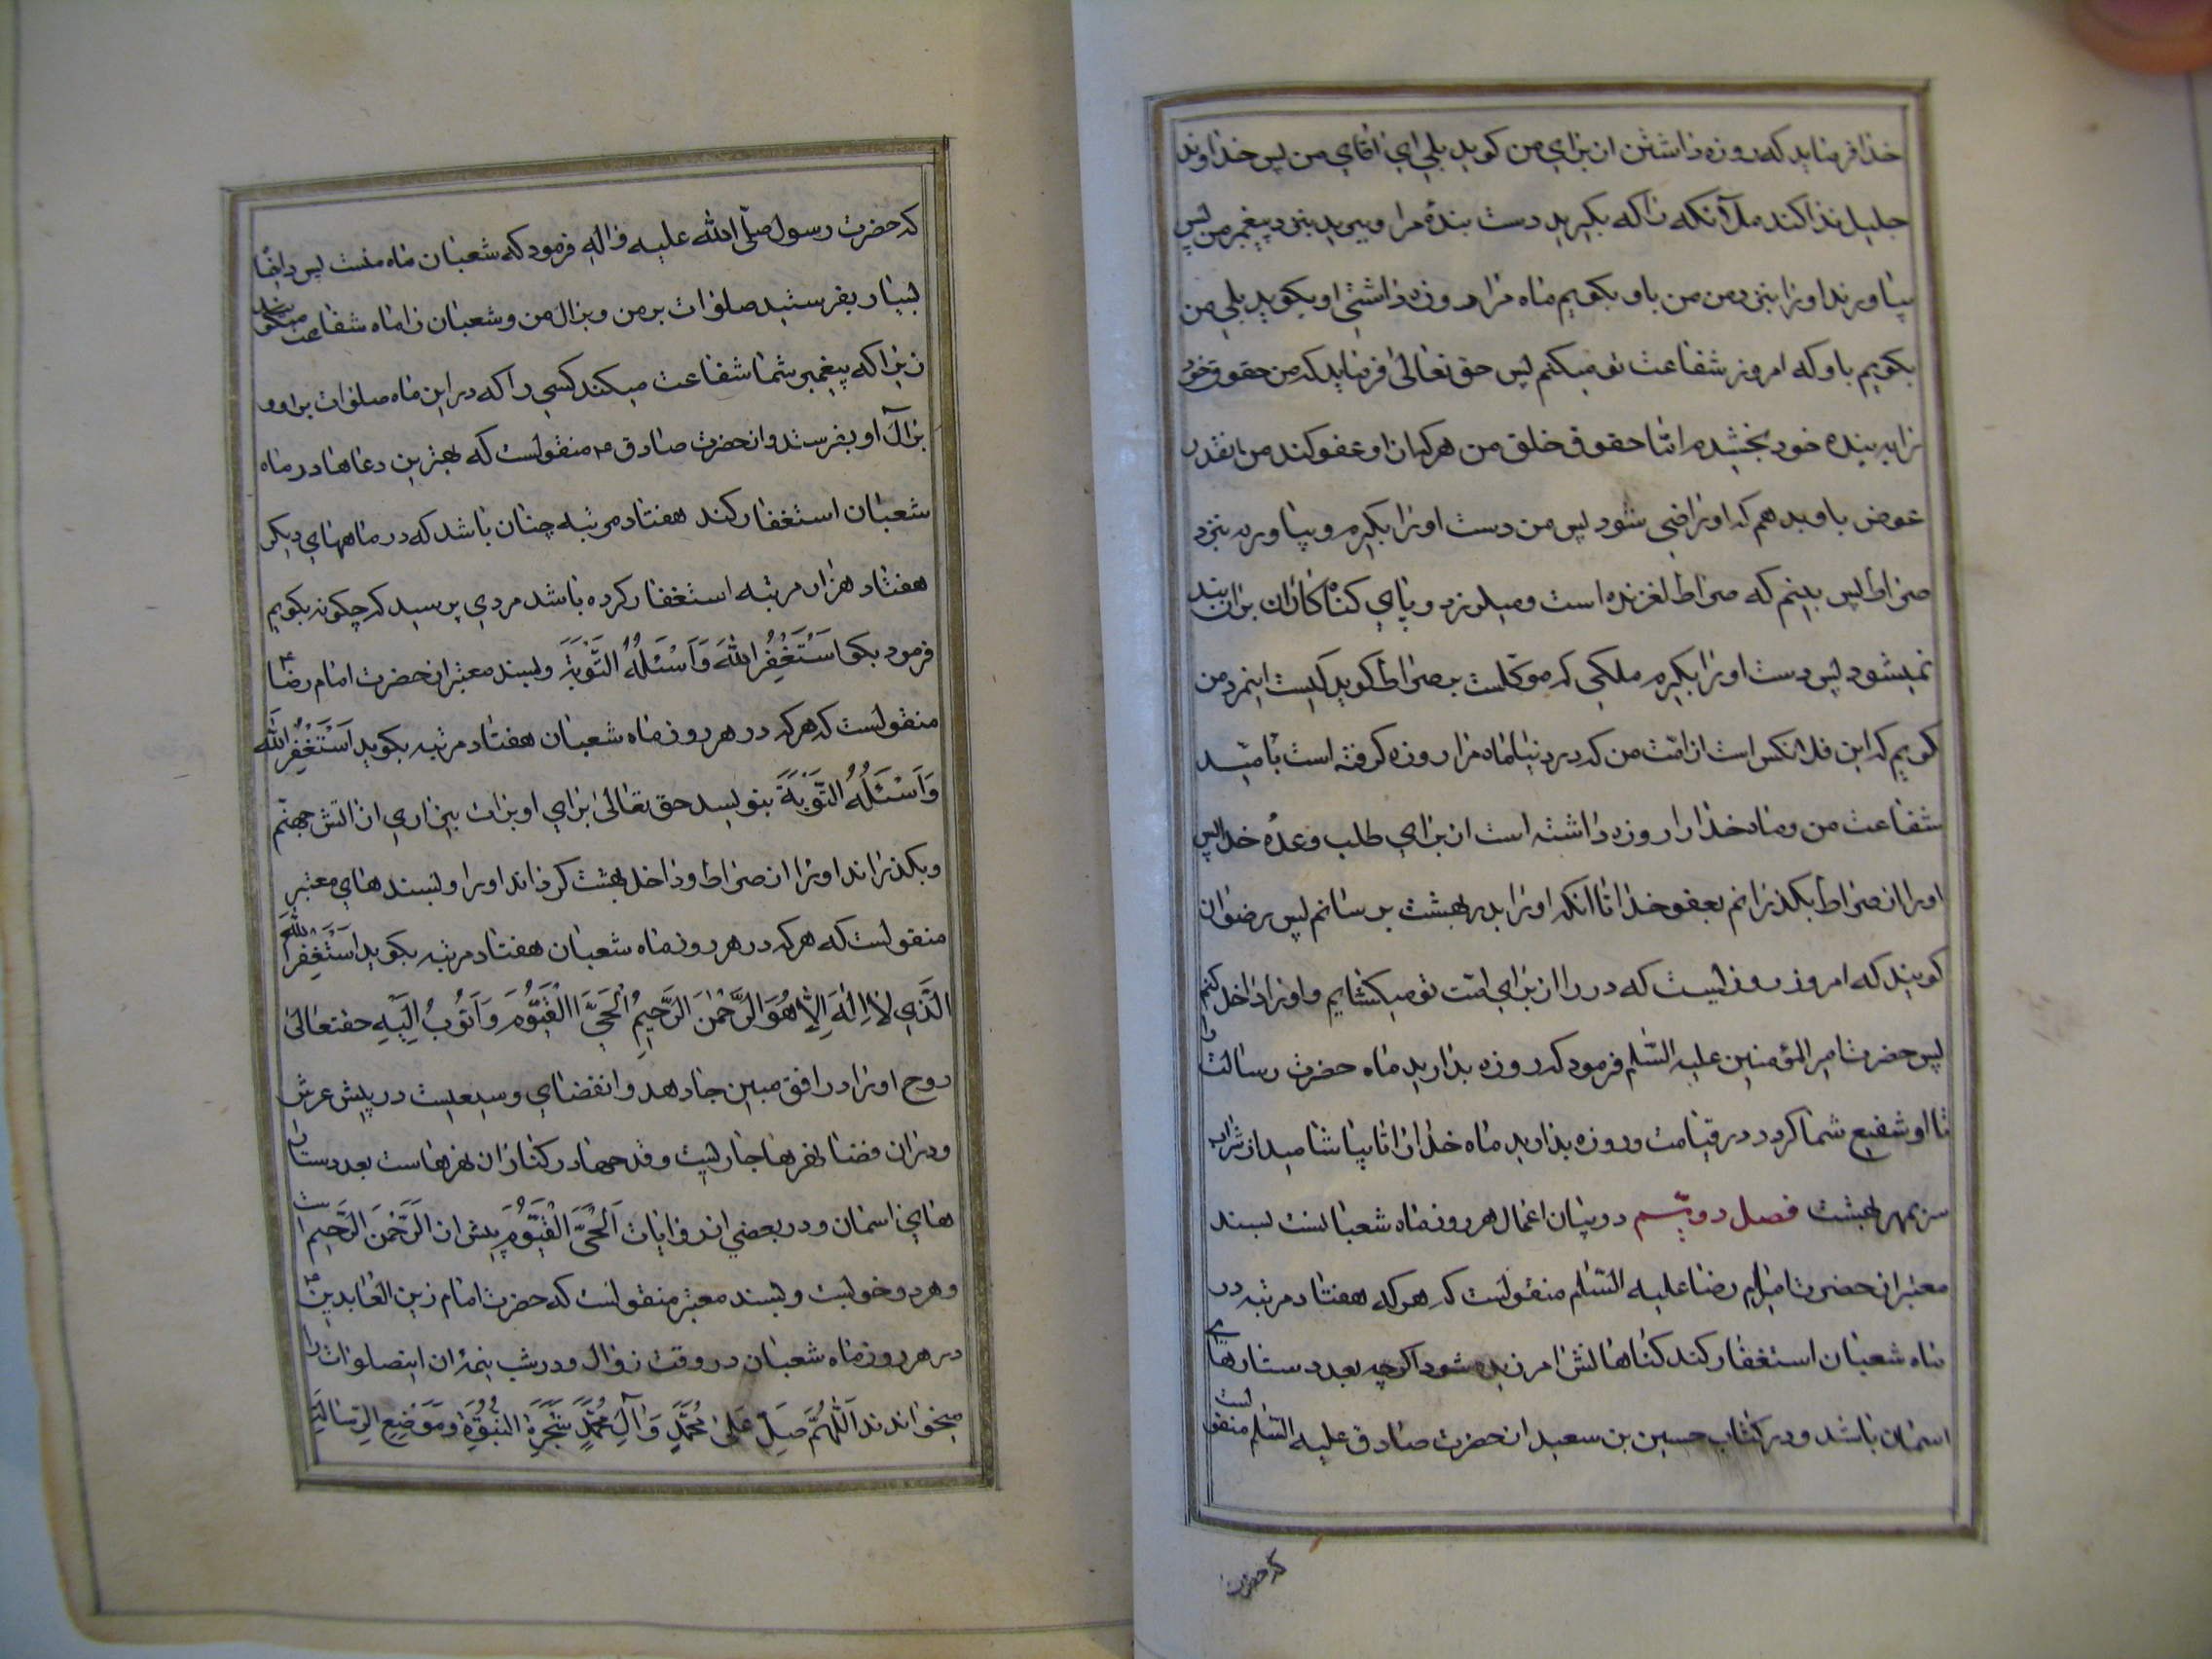 خدا فرماید که روزه داشتن از برای من کوید بلی ای اقای من پس خداوند
جلیل ندا کند ملآئکه را که بکیرید دست بندهٔ مرا و ببرید بنزد پیغمبر من پس
بیاورند اورا بنزد من من باو بکویم ماه مرا روزه داشتی او بکوید بلی من
بکویم باو که امروز شفاعت تو میکنم پس حق تعالی فرماید که من حقوق خود
را به بنده خود بخشیدم امّا حقوق خلق من هر که از او عفو کند من انقدر
عوض باو بدهم که او راضی شود پس من دست اورا بکیرم و بیاورم بنزد
صراط پس بینم که صراط لغزنده است و میلرزد و پای کناه کاران بران بند
نمیشود پس دست اورا بکیرم ملکی که موکلست بصراط کوید کیست اینمرد من
کویم که این فلانکس است از امّت من که در دنیا ماه مرا روزه کرفته است بامّید
شفاعت من و ماه خدا را روزه داشته است از برای طلب وعدهٔ خدا پس
اورا از صراط بکذرانم بعفو خدا تا انکه اورا بدر بهشت برسانم پس رضوان
کوید که امروز روزیست که در را از برای امّت تو میکشایم و اورا داخل کنم
پس حضرت امیر المؤمنین علیه السّلم فرمود که روزه بدارید ماه حضرت رسالت را
تا او شفیع شما کردد در قیامت و روزه بدارید ماه خدا را تا بیاشامید از شراب
سر بمهر بهشت فصل دویّم در بیان اعمال هر روز ماه شعبانست بسند
معتبر از حضرت امام رضا علیه السّلم منقولست که هر که هفتاد مرتبه در
ماه شعبان استغفار کند کناهانش امرزیده شود اکرچه بعدد ستارهای
اسمان باشد و در کتاب حسین بن سعید از حضرت صادق علیه السّلم منقولست
که حضرت
که حضرت رسول صلّی الله علیه و اله فرمود که شعبان ماه منست پس دائما
بسیار بفرستید صلوات بر من و بر ال من و شعبان را ماه شفاعت میکویند
زیرا که پیغمبر شما شفاعت میکند کسی را که در این ماه صلوات بر او و
بر آل او بفرستد و از حضرت صادق ع منقولست که بهترین دعاها در ماه
شعبان استغفار کند هفتاد مرتبه چنان باشد که در ماههای دیکر
هفتاد هزار مرتبه استغفار کرده باشد مردی پرسید که چکونه بکویم
فرمود بکو اَسْتَغْفِرُ اللّهَ وَ اَسْئَلُهُ التَّوْبَةَ و بسند معتبر از حضرت امام رضا ع
منقولست که هر که در هر روز ماه شعبان هفتاد مرتبه بکوید اَسْتَغْفِرُ اللّهَ
وَ اَسْئَلُهُ التَّوْبَةَ بنویسد حق تعالی برای او برات بیزاری از اتش جهنّم
و بکذراند اورا از صراط و داخل بهشت کرداند اورا و بسند های معتبر
منقولست که هر که در هر روز ماه شعبان هفتاد مرتبه بکوید اَسْتَغْفِرُ اللّهَ
الَّذِی لٰا اِلٰهَ اِلّٰا هُوَ الرَّحْمٰنَ الرَّحِیمَ الْحَیَّ الْقَیُّومَ وَ اَتُوبُ اِلَیْهِ حقتعالی
روح اورا در افق مبین جا دهد و ان فضای وسیعیست در پیش عرش
و در ان فضا نهرها جاریست و قدحها در کنار ان نهرهاست بعدد ستاره
های اسمان و در بعضی از روایات اَلْحَیَّ الْقَیُّومَ پیش از الرَّحْمٰنَ الرَّحِیمَ است
و هر دو خوبست و بسند معتبر منقولست که حضرت امام زین العابدین ع
در هر روز ماه شعبان در وقت زوال و در شب نیمه ان اینصلوات را
میخواندند اَللّهُمَّ صَلِّ عَلیٰ مُحَمَّدٍ وَ آلِ مُحَمَّدٍ شَجَرَةِ النُّبُوَّةِ وَ مَوْضِعِ الرِّسٰالَةِ